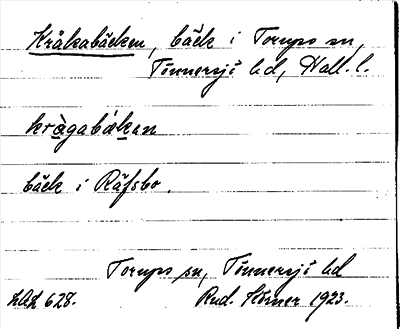 Kråkabäcken, bäck i Torups sn,
Tönnersjö hd, Hall. l.
kràgabákan
bäck i Räfsbo.
Torups sn, Tönnersjö hd
LAL 628. Rud. Hörner 1923.